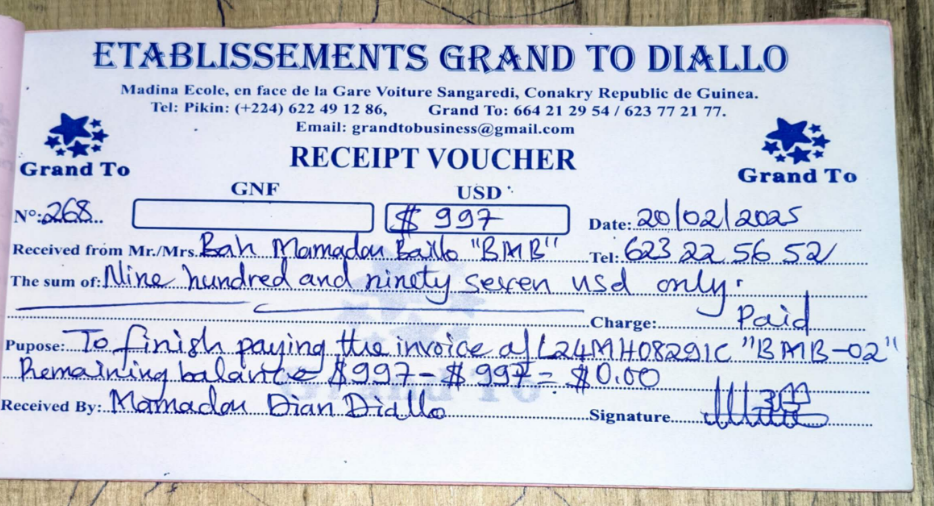 ETABLISSEMENTS GRAND TO DIALLO
Madina Ecole, en face de la Gare Voiture Sangaredi, Conakry Republic de Guinea.
Tel: Pikin: (+224) 622 49 12 86, Grand To: 664 21 29 54 / 623 77 21 77.
Email: grandtobusiness@gmail.com
Grand To
RECEIPT VOUCHER
Grand To
GNF USD
N°: 268 $ 997 Date: 20/02/2025
Received from Mr./Mrs. Bah Mamadou "BMB" Tel: 623 22 56 52
The sum of: Nine hundred and ninety seven usd only.
Charge: Paid
Pupose: To finish paying the invoice of L24MH08291C "BMB-02"
Remaining balance $997 - $997 = $0.00
Received By: Mamadou Dian Diallo Signature